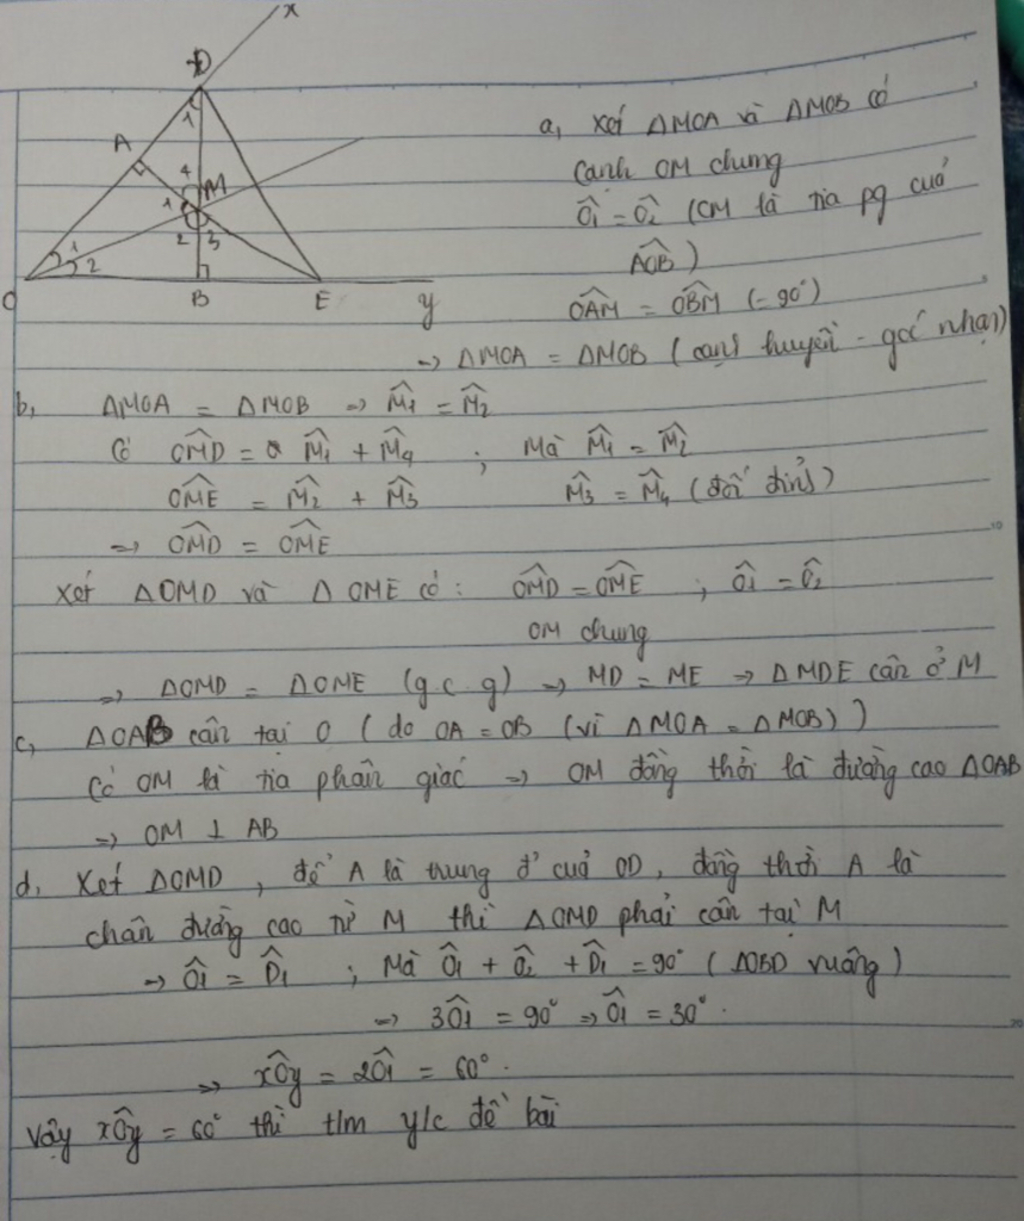 x
D
A
1
4
M
1
2 3
1
2
O
B
E
y
a, Xét ΔMOA và ΔMOB có
Cạnh OM chung
Ô1 = Ô2 (OM là tia pg của
AÔB)
OÂM = OB̂M (= 90°)
=> ΔMOA = ΔMOB (cạnh huyền - góc nhọn)
b, ΔMOA = ΔMOB => M̂1 = M̂2
Có OM̂D = M̂1 + M̂4 ; Mà M̂1 = M̂2
OM̂E = M̂2 + M̂3 M̂3 = M̂4 (đối đỉnh)
=> OM̂D = OM̂E
Xét ΔOMD và ΔOME có : OM̂D = OM̂E ; Ô1 = Ô2
OM chung
=> ΔOMD = ΔOME (g.c.g) => MD = ME => ΔMDE cân ở M
c, ΔOAB cân tại O (do OA = OB (vì ΔMOA = ΔMOB))
Có OM là tia phân giác => OM đồng thời là đường cao ΔOAB
=> OM ⊥ AB
d, Xét ΔOMD, để A là trung đ' của OD, đồng thời A là
chân đường cao từ M thì ΔOMD phải cân tại M
=> Ô1 = D̂1 ; Mà Ô1 + Ô2 + D̂1 = 90° (ΔOBD vuông)
=> 3Ô1 = 90° => Ô1 = 30°.
=> xÔy = 2Ô1 = 60°.
Vậy xÔy = 60° thì t/m y/c đề bài